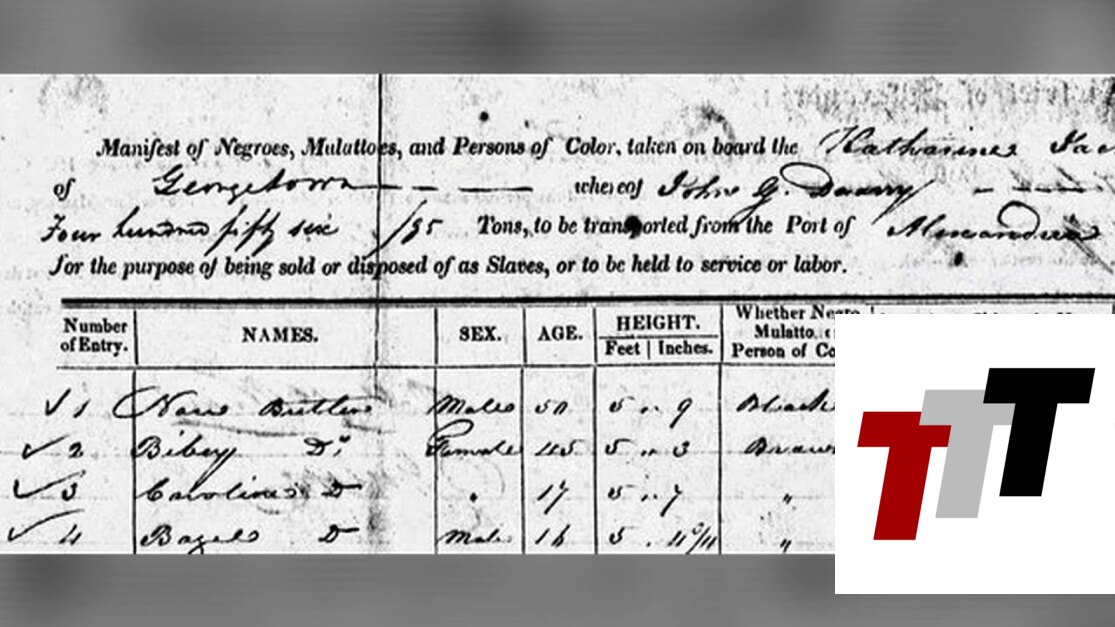 Manifest of Negroes, Mulattoes, and Persons of Color, taken on board the Katharine Jac
of Georgetown whereof John G.
Four hundred fifty six /95 Tons, to be transported from the Port of Alexandria
for the purpose of being sold or disposed of as Slaves, or to be held to service or labor.
Number of Entry. NAMES. SEX. AGE. HEIGHT. Feet Inches. Whether Negro Mulatto, Person of Co
1 Butler Male 50 5 " 9 Black
2 Bibey Do Female 45 5 " 3 Brown
3 Caroline D " 17 5 " 7 "
4 D Male 16 5 "
TTT